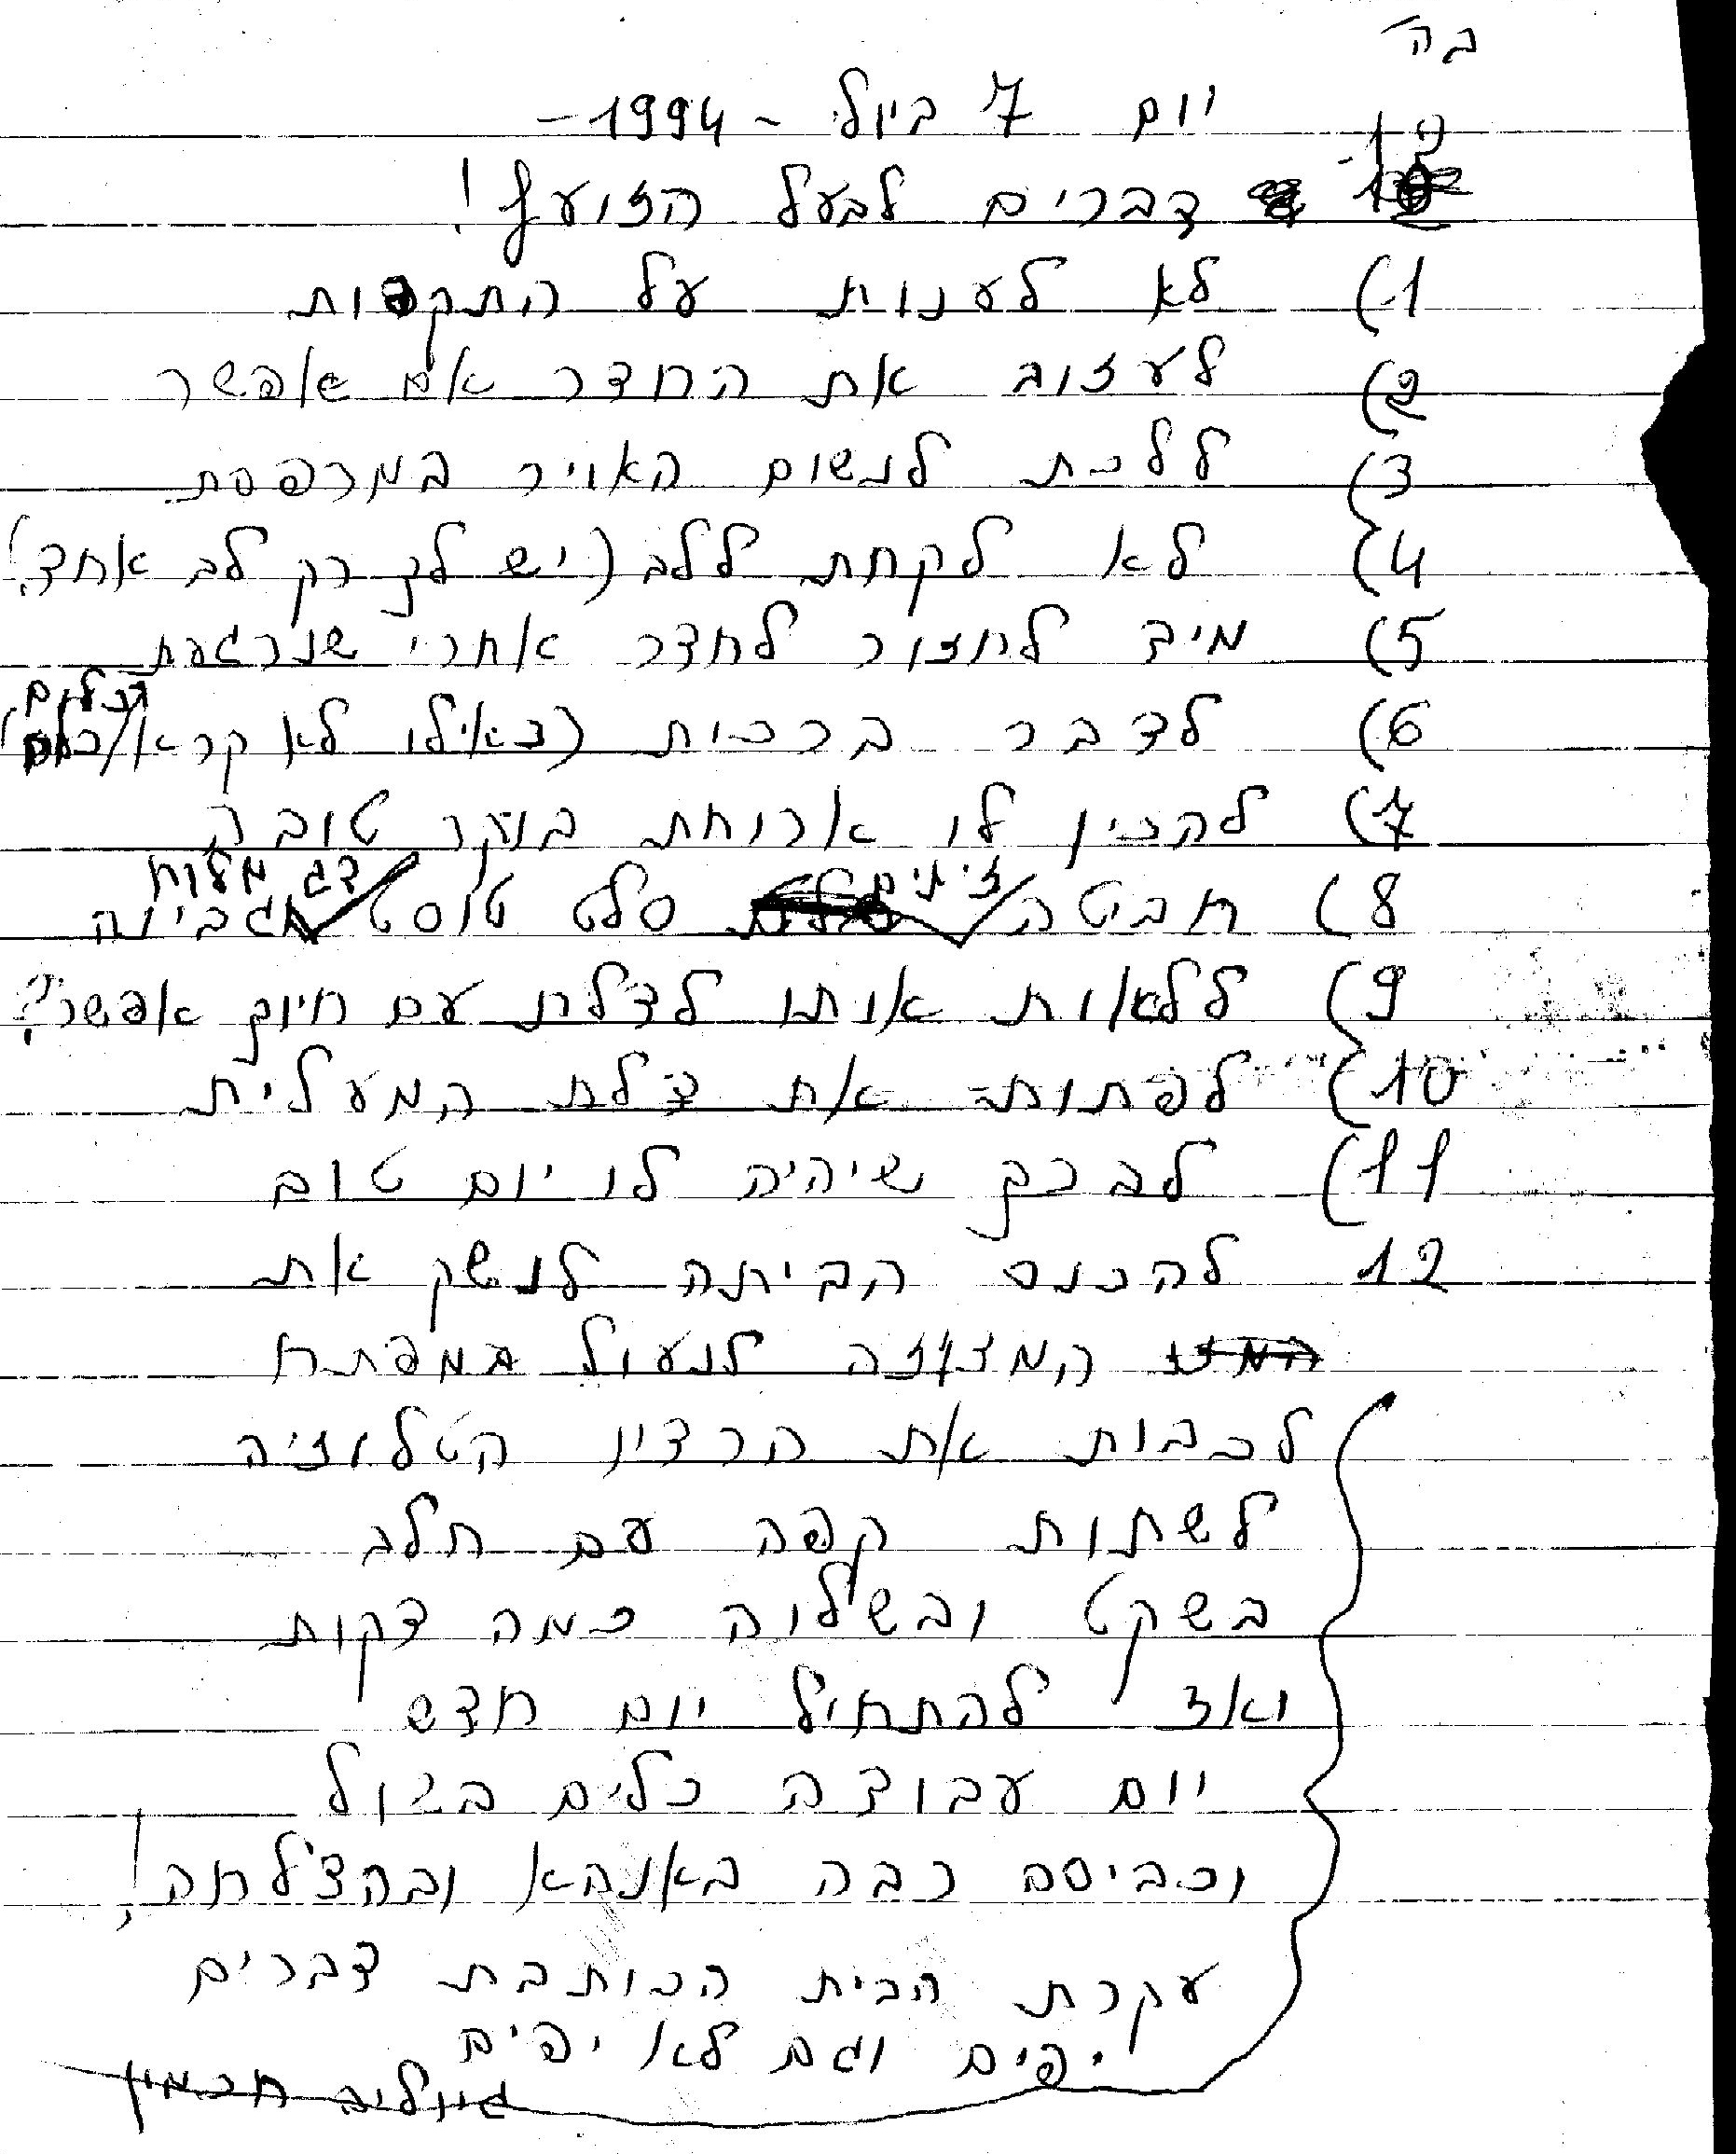 בה
יום 7 ביולי - 1994 -
12
דברים לבעל הזועף!
1) לא לענות על התקפות
2) לעזוב את החדר אם אפשר
3) ללכת לנשום האויר במרפסת
4) לא לקחת ללב (יש לך רק לב אחד!)
5) מיד לחזור לחדר אחרי שנרגעת
כלום
6) לדבר ברכות (כאילו לא קרא
7) להכין לו ארוחת בוקר טובה
זיתים דג מלוח
8) חביטה סלט טוסט גבינה
9) ללאות אותו לדלת עם חיוך אפשר?
10) לפתוח את דלת המעלית
11) לברך שיהיה לו יום טוב
12 להכנס הביתה לנשק את
המזוזה לנעול במפתח
לכבות את הרדיו הטלוזיה
לשתות קפה עם חלב
בשקט ובשלוה כמה דקות
ואז להתחיל יום חדש
יום עבודה כלים בשול
וכביסה רבה באנהא ובהצלחה!
עקרת הבית הכותבת דברים
יפים וגם לא יפים
גיוליה חכמון